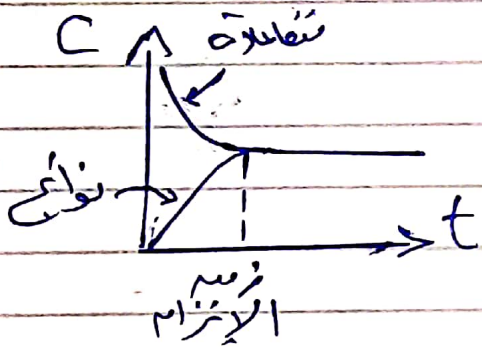 C
متفاعلة
نواتج
t
زمن
الإتزان